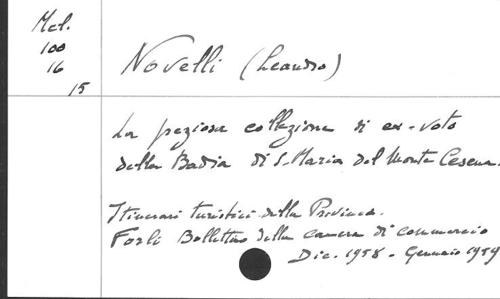 Mcl.
100
16
15
Novelli (Leandro)
La peziosa collezione di ex-voto
della Badia di S. Maria del Monte Cesena.
Itinerari turistici della Provincia.
Forlì Bollettino della camera di commercio
Dic. 1958 - Gennaio 1959